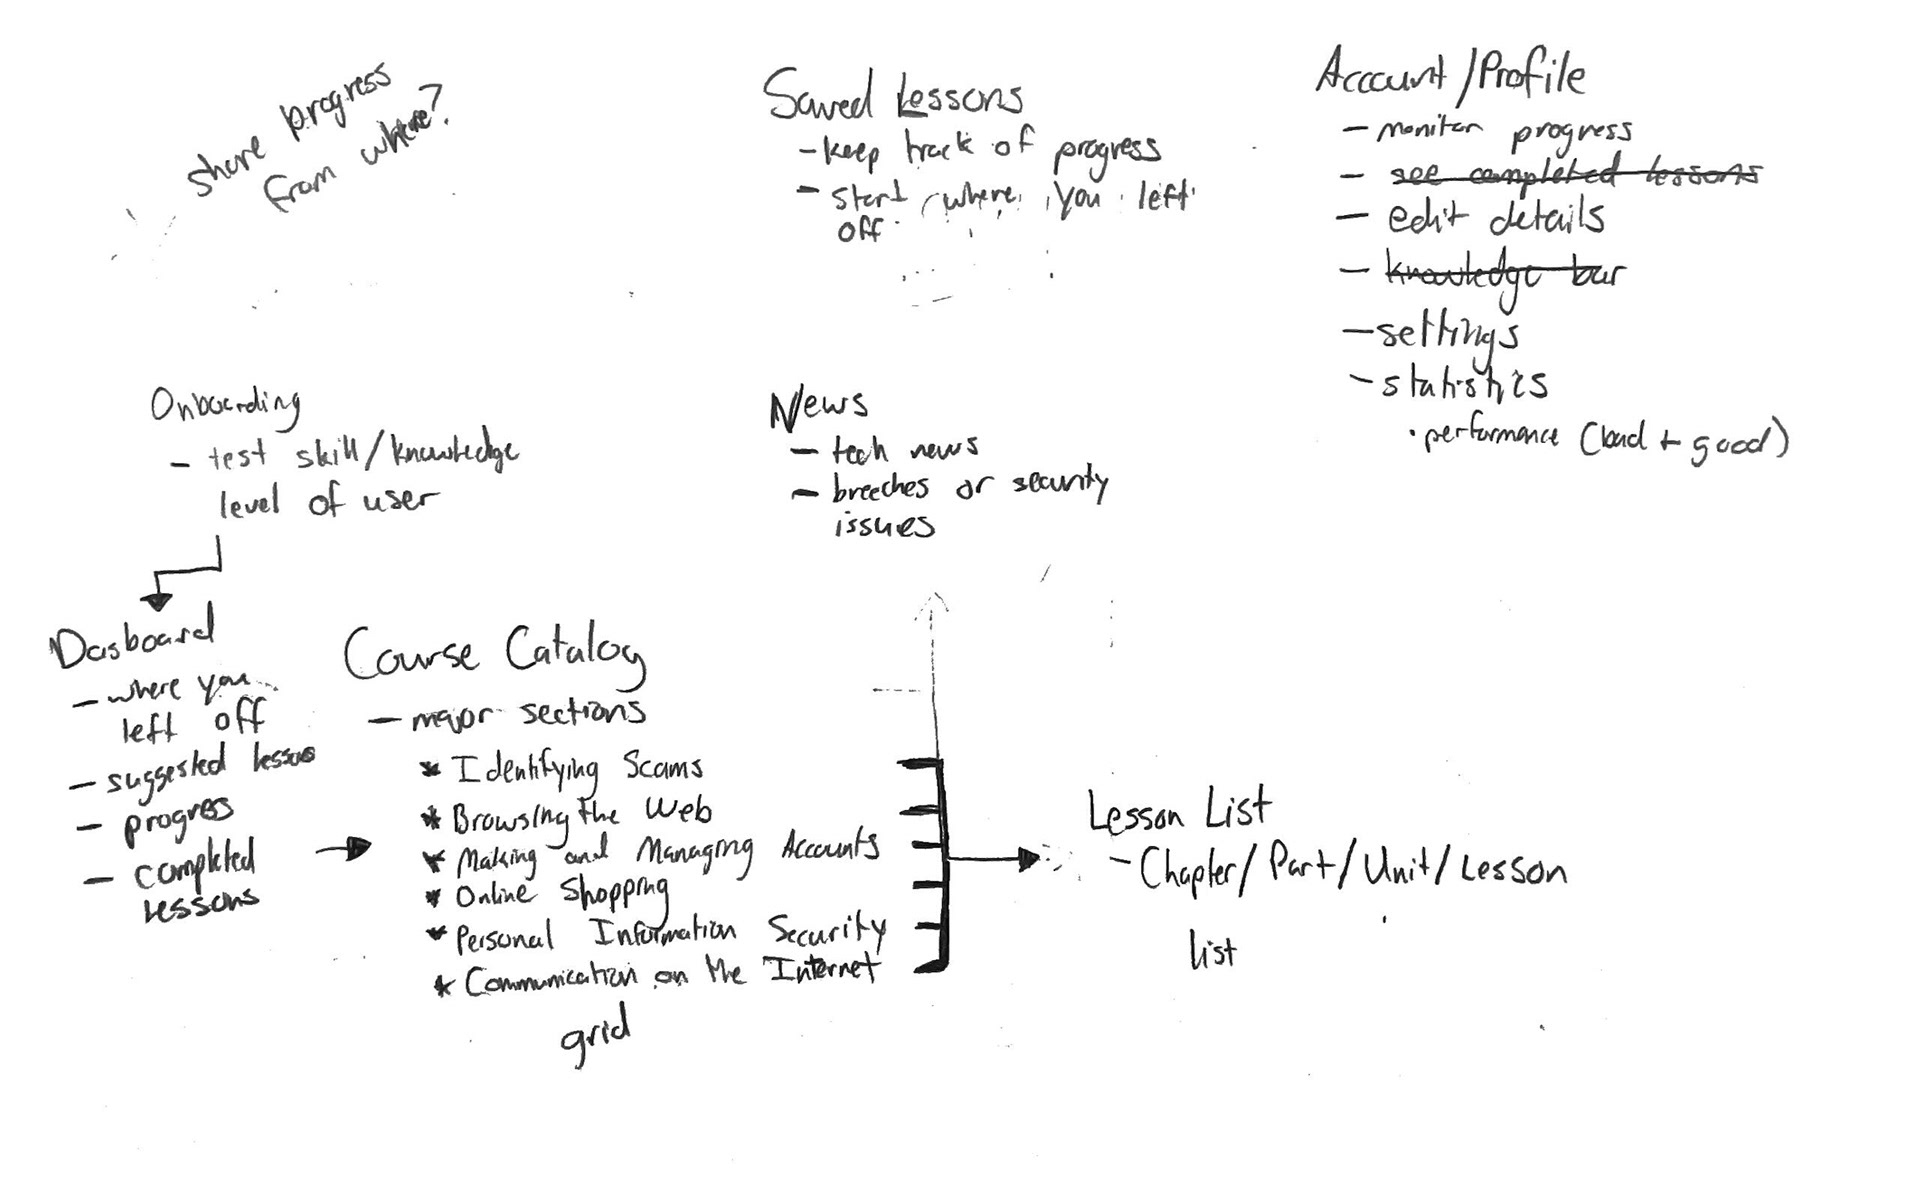 share progress
from where?
Saved Lessons
- keep track of progress
- start where you left
off
Account/Profile
- monitor progress
- see completed lessons
- edit details
- knowledge bar
- settings
- statistics
· performance (bad + good)
Onboarding
- test skill/knowledge
level of user
News
- tech news
- breeches or security
issues
Dasboard
- where you
left off
- suggested lessons
- progress
- completed
lessons
Course Catalog
- major sections
* Identifying Scams
* Browsing the Web
* Making and Managing Accounts
* Online Shopping
* Personal Information Security
* Communication on the Internet
grid
Lesson List
- Chapter/Part/Unit/Lesson
list